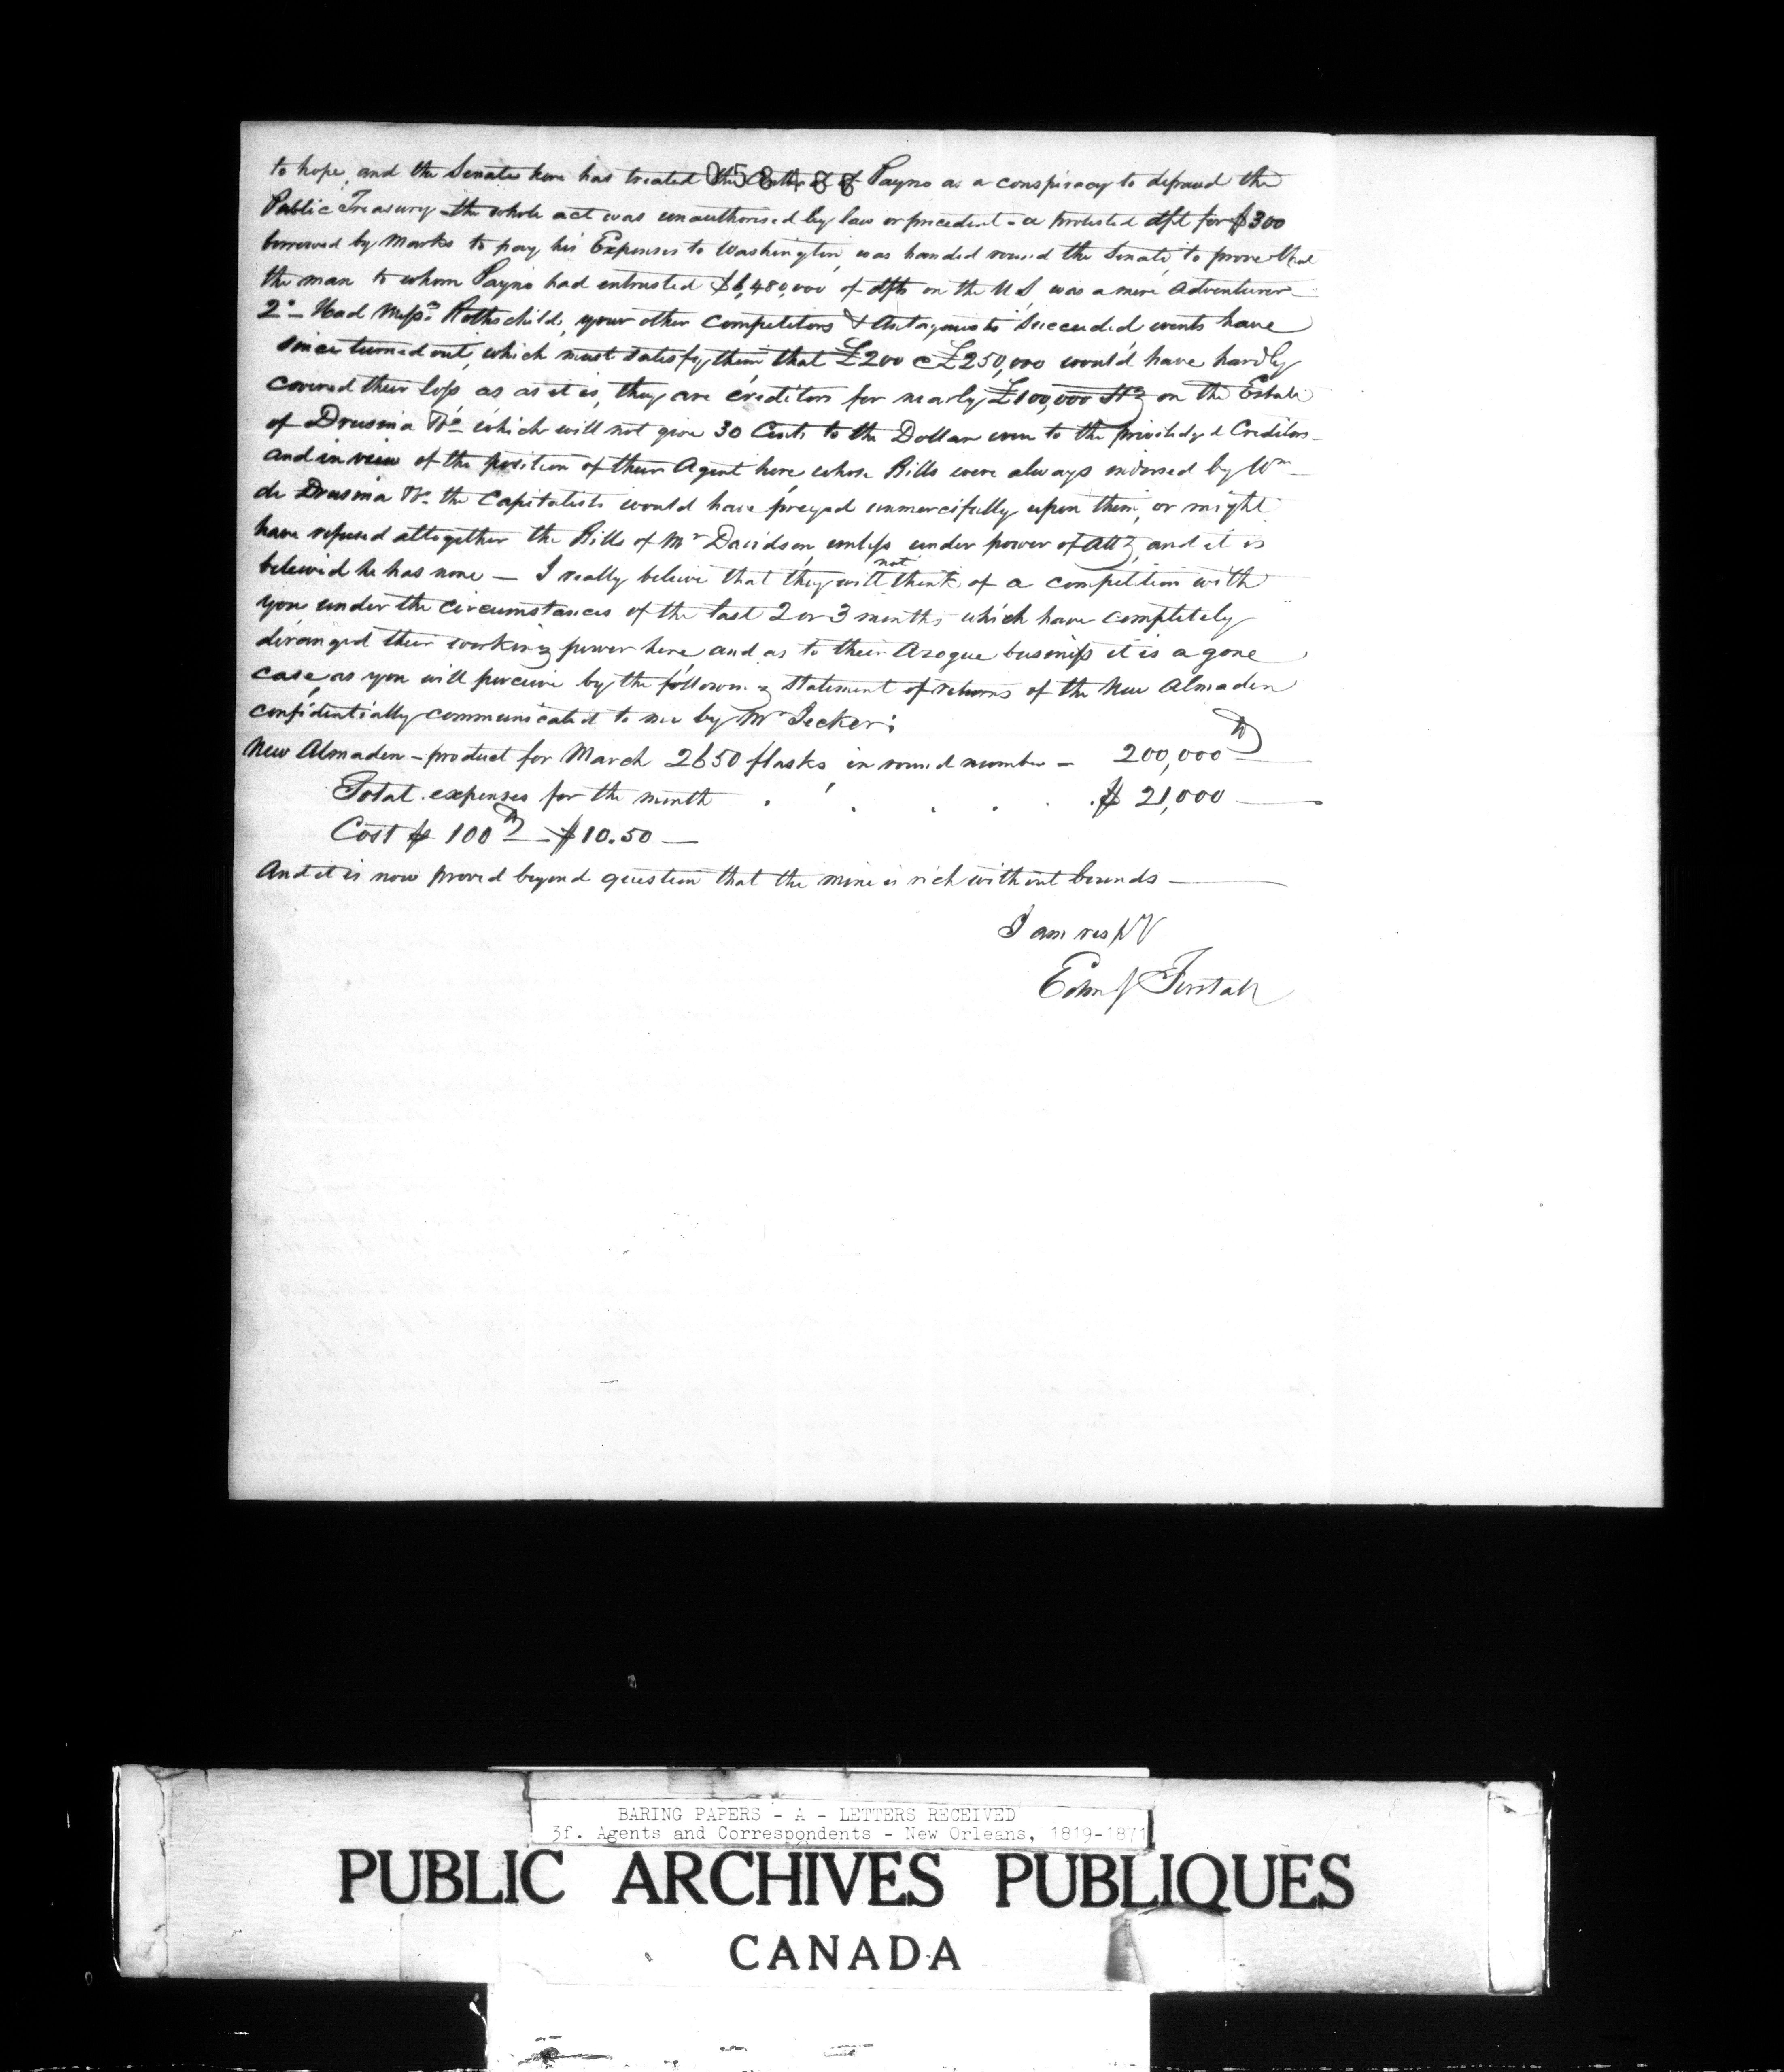 058488
to hope, and the Senate here has treated the of Payno as a conspiracy to defraud the
Public Treasury - the whole act was unauthorised by law or precedent - a protested dft for $300
borrowed by Marks to pay his Expenses to Washington, was handed round the Senate to prove that
the man to whom Payno had entrusted $6,480,000 of dfts on the U S, was a mere adventurer -
2º - Had Messrs Rothschilds, your other competitors & Antagonists succeeded, events have
since turned out, which must satisfy them that £200 @ £250,000 would have hardly
covered their loss as as it is, they are creditors for nearly £100,000 Stg on the Estate
of Drusina &Co which will not give 30 Cents to the Dollar even to the priviledged Creditors -
and in view of the position of their Agent here, whose Bills were always endorsed by Wm
de Drusina &Co the Capitalists would have preyed unmercifully upon them, or might
have refused altogether the Bills of Mr Davidson, unless under power of Atty, and it is
believed he has none - I really believe that they will not think of a competition with
you under the circumstances of the last 2 or 3 months, which have completely
deranged their working power here and as to their Azogue business it is a gone
case, as you will perceive by the following statement of returns of the New Almaden
confidentially communicated to me by Mr Jecker:
New Almaden - product for March 2650 flasks, in round number - 200,000 lb
Total expenses for the month . . . . . $ 21,000 -
Cost p 100 lb - $10.50 -
And it is now proved beyond question that the mine is rich without bounds -
I am respy
Edm J Forstall
BARING PAPERS - A - LETTERS RECEIVED
3f. Agents and Correspondents - New Orleans, 1819-1871
PUBLIC ARCHIVES PUBLIQUES
CANADA